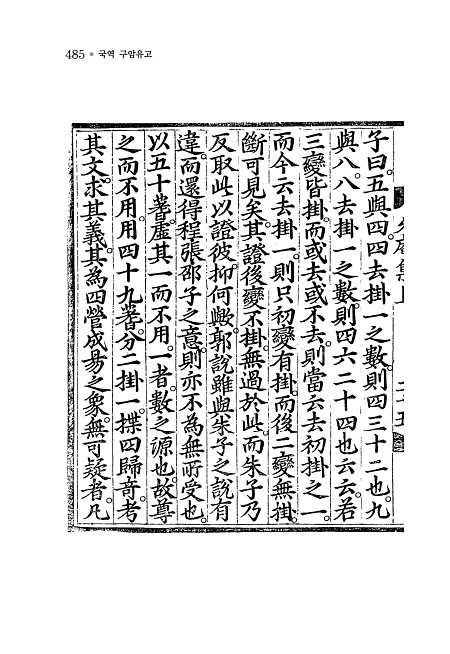 485 ● 국역 구암유고
子曰。五與四。四去掛一之數。則四三十二也。九
與八。八去掛一之數。則四六二十四也云云。若
三變皆掛。而或去或不去。則當云去初掛之一。
而今云去掛一。則只初變有掛。而後二變無掛。
斷可見矣。其證後變不掛。無過於此。而朱子乃
反取此以證彼。抑何歟。郭說雖與朱子之說有
違。而還得程張邵子之意。則亦不為無所受也。
以五十蓍。虛其一而不用。一者數之源也。故尊
之而不用。用四十九蓍。分二掛一。揲四歸奇。考
其文。求其義。其為四營成易之象。無可疑者。凡